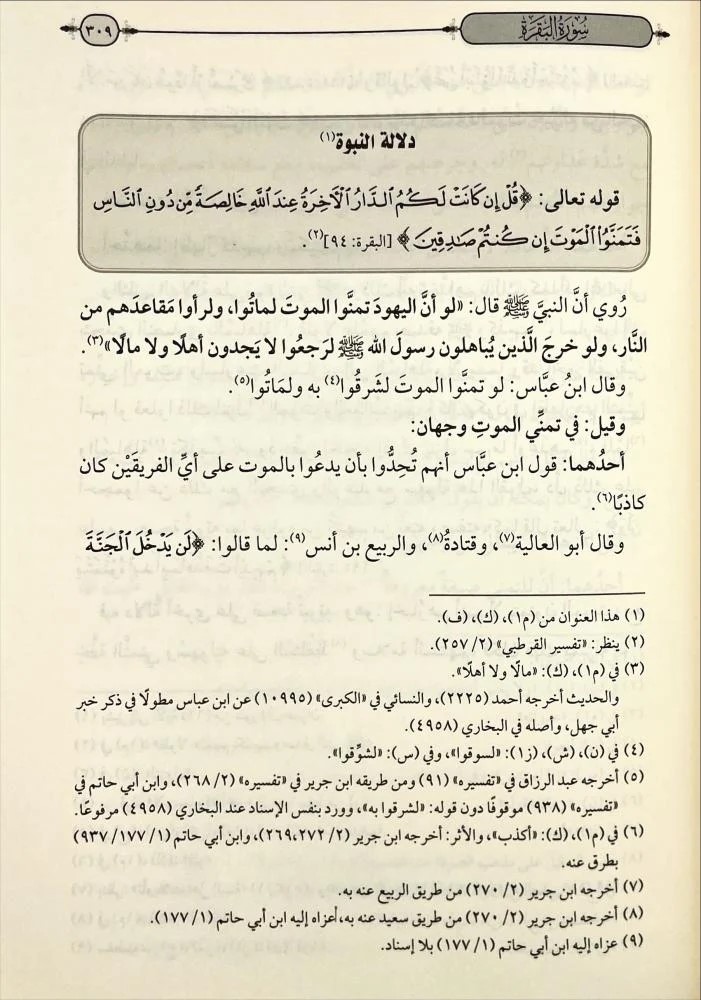 سُورَةُ البَقَرَةِ
٣٠٩
دلالة النبوة(١)
قوله تعالى: ﴿قُلْ إِن كَانَتْ لَكُمُ الدَّارُ الْآخِرَةُ عِندَ اللَّهِ خَالِصَةً مِّن دُونِ النَّاسِ
فَتَمَنَّوُا الْمَوْتَ إِن كُنتُمْ صَادِقِينَ﴾ [البقرة: ٩٤](٢).
رُوي أنَّ النبيَّ ﷺ قال: «لو أنَّ اليهودَ تمنَّوا الموتَ لماتُوا، ولرأوا مَقاعدَهم من
النَّار، ولو خرجَ الَّذين يُباهلون رسولَ الله ﷺ لرَجعُوا لا يَجدون أهلًا ولا مالًا»(٣).
وقال ابنُ عبَّاس: لو تمنَّوا الموتَ لشَرقُوا(٤) به ولمَاتُوا(٥).
وقيل: في تمنِّي الموتِ وجهان:
أحدُهما: قول ابن عبَّاس أنهم تُحِدُّوا بأن يدعُوا بالموت على أيِّ الفريقَيْن كان
كاذبًا(٦).
وقال أبو العالية(٧)، وقتادةُ(٨)، والربيع بن أنس(٩): لما قالوا: ﴿لَن يَدْخُلَ الْجَنَّةَ
(١) هذا العنوان من (م١)، (ك)، (ف).
(٢) ينظر: «تفسير القرطبي» (٢/ ٢٥٧).
(٣) في (م١)، (ك): «مالًا ولا أهلًا».
والحديث أخرجه أحمد (٢٢٢٥)، والنسائي في «الكبرى» (١٠٩٩٥) عن ابن عباس مطولًا في ذكر خبر
أبي جهل، وأصله في البخاري (٤٩٥٨).
(٤) في (ن)، (ش)، (ز١): «لسوقوا»، وفي (س): «لشوِّقوا».
(٥) أخرجه عبد الرزاق في «تفسيره» (٩١) ومن طريقه ابن جرير في «تفسيره» (٢/ ٢٦٨)، وابن أبي حاتم في
«تفسيره» (٩٣٨) موقوفًا دون قوله: «لشرقوا به»، وورد بنفس الإسناد عند البخاري (٤٩٥٨) مرفوعًا.
(٦) في (م١)، (ك): «أكذب»، والأثر: أخرجه ابن جرير (٢/ ٢٦٩،٢٧٢)، وابن أبي حاتم (١/ ١٧٧/ ٩٣٧)
بطرق عنه.
(٧) أخرجه ابن جرير (٢/ ٢٧٠) من طريق الربيع عنه به.
(٨) أخرجه ابن جرير (٢/ ٢٧٠) من طريق سعيد عنه به، أعزاه إليه ابن أبي حاتم (١/ ١٧٧).
(٩) عزاه إليه ابن أبي حاتم (١/ ١٧٧) بلا إسناد.